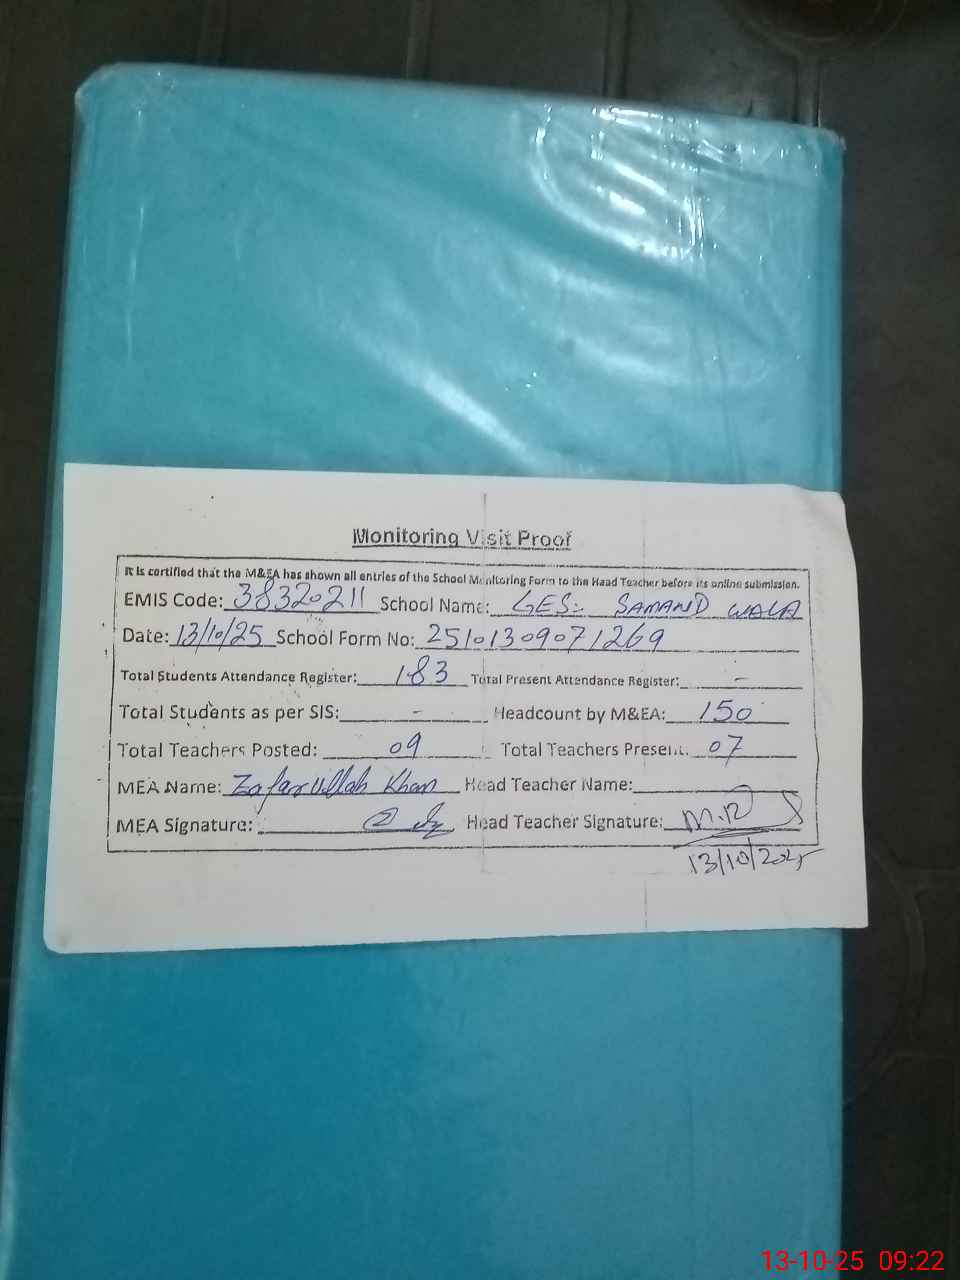 Monitoring Visit Proof
It is certified that the M&EA has shown all entries of the School Monitoring Form to the Head Teacher before its online submission.
EMIS Code: 38320211 School Name: GES:. SAMAND WALA
Date: 13/10/25 School Form No: 25101309071269
Total Students Attendance Register: 183 Total Present Attendance Register: -
Total Students as per SIS: - Headcount by M&EA: 150
Total Teachers Posted: 09 Total Teachers Present: 07
MEA Name: Zafarullah Khan Head Teacher Name:
MEA Signature: Head Teacher Signature:
13/10/2025
13-10-25 09:22